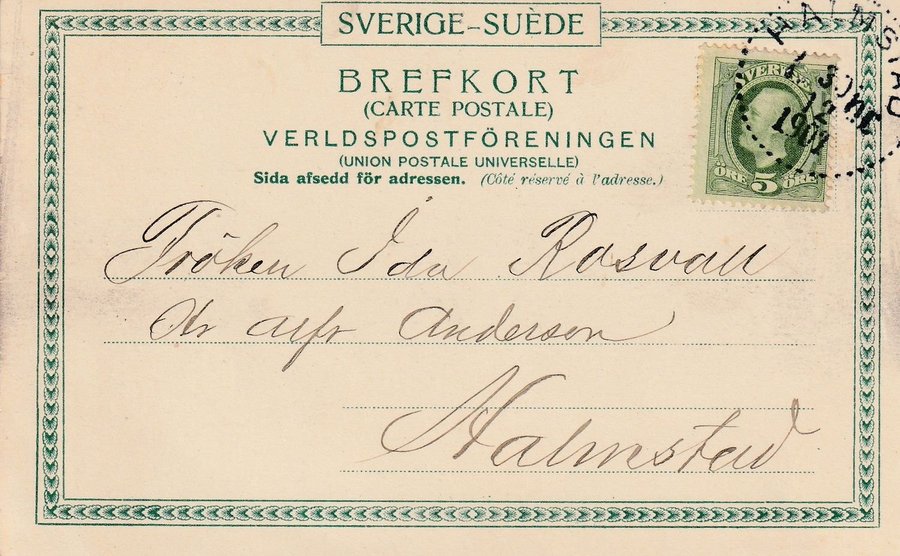 SVERIGE-SUÈDE
BREFKORT
(CARTE POSTALE)
VERLDSPOSTFÖRENINGEN
(UNION POSTALE UNIVERSELLE)
Sida afsedd för adressen. (Côté réservé à l'adresse.)
SVERIGE
ÖRE 5 ÖRE
HALMSTAD
12
1901
Fröken Ida Rosvall
Hr Alfr Anderson
Halmstad